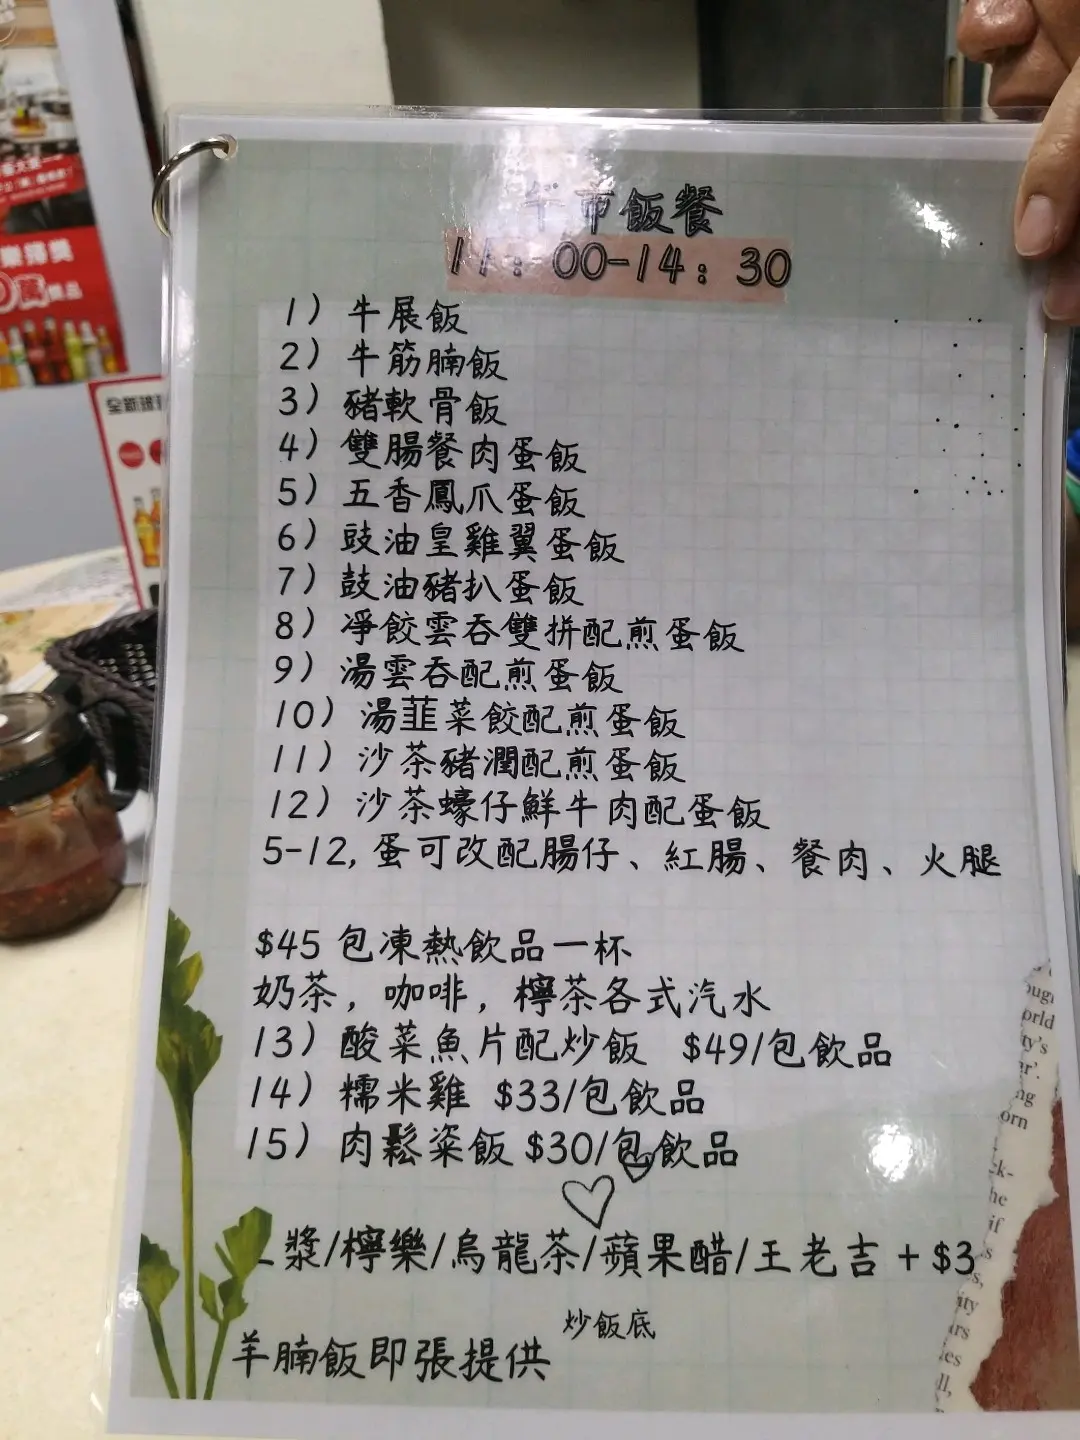 午市飯餐
11：00-14：30
1）牛展飯
2）牛筋腩飯
3）豬軟骨飯
4）雙腸餐肉蛋飯
5）五香鳳爪蛋飯
6）豉油皇雞翼蛋飯
7）鼓油豬扒蛋飯
8）淨餃雲吞雙拼配煎蛋飯
9）湯雲吞配煎蛋飯
10）湯韮菜餃配煎蛋飯
11）沙茶豬潤配煎蛋飯
12）沙茶蠔仔鮮牛肉配蛋飯
5-12, 蛋可改配腸仔、紅腸、餐肉、火腿
$45 包凍熱飲品一杯
奶茶，咖啡，檸茶各式汽水
13）酸菜魚片配炒飯 $49/包飲品
14）糯米雞 $33/包飲品
15）肉鬆粢飯 $30/包飲品
漿/檸樂/烏龍茶/蘋果醋/王老吉 + $3
炒飯底
羊腩飯即張提供
ough
orld
ity's
ng
orn
he
if
ity